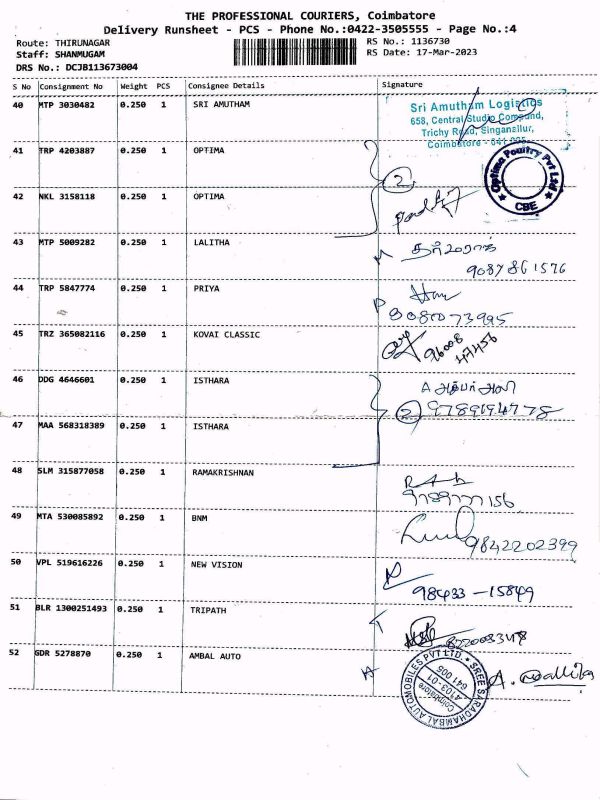 THE PROFESSIONAL COURIERS, Coimbatore
Delivery Runsheet - PCS - Phone No.:0422-3505555 - Page No.:4
Route: THIRUNAGAR RS No.: 1136730
Staff: SHANMUGAM RS Date: 17-Mar-2023
DRS No.: DCJB113673004
S No Consignment No Weight PCS Consignee Details Signature
40 MTP 3030482 0.250 1 SRI AMUTHAM
Sri Amutham Logistics
658, Central Studio Compound,
Trichy Road, Singanallur,
Coimbatore - 641 005.
41 TRP 4203887 0.250 1 OPTIMA
2
Optima Poultry Pvt Ltd
CBE
42 NKL 3158118 0.250 1 OPTIMA
43 MTP 5009282 0.250 1 LALITHA
9087861576
44 TRP 5847774 0.250 1 PRIYA
8080073995
45 TRZ 365082116 0.250 1 KOVAI CLASSIC
96008
47456
46 DDG 4646601 0.250 1 ISTHARA
2 9789194778
47 MAA 568318389 0.250 1 ISTHARA
48 SLM 315877058 0.250 1 RAMAKRISHNAN
9789777156
49 MTA 530085892 0.250 1 BNM
9842202399
50 VPL 519616226 0.250 1 NEW VISION
98433-15849
51 BLR 1300251493 0.250 1 TRIPATH
52 GDR 5278870 0.250 1 AMBAL AUTO
SREE SARADHAMBAL AUTOMOBILES PVT LTD
Coimbatore
641 005